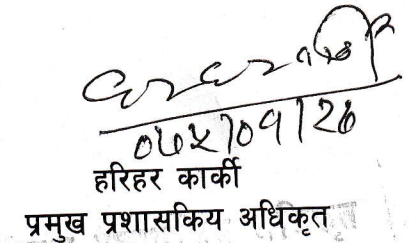 ०७५/०९/२७
हरिहर कार्की
प्रमुख प्रशासकिय अधिकृत